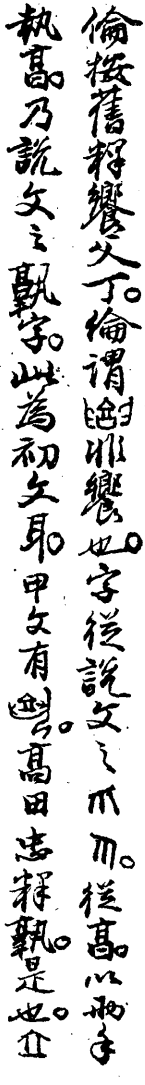 倫按舊釋饗父丁。倫謂非饗也。字從說文之爪𠃨。從𩫖。以兩手
執𩫖。乃說文之𩫖字。此為初文耳。甲文有。高田忠釋孰。是也。